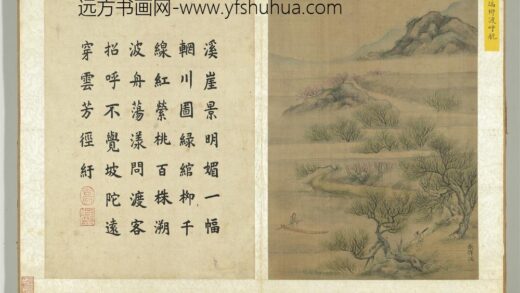 远方书画网-www.yfshuhua.com
溪崖景明媚一幅
輞川圖綠綰柳千
線紅縈桃百株溯
波舟蕩漾問渡客
招呼不覺坡陀遠
穿雲芳徑紆